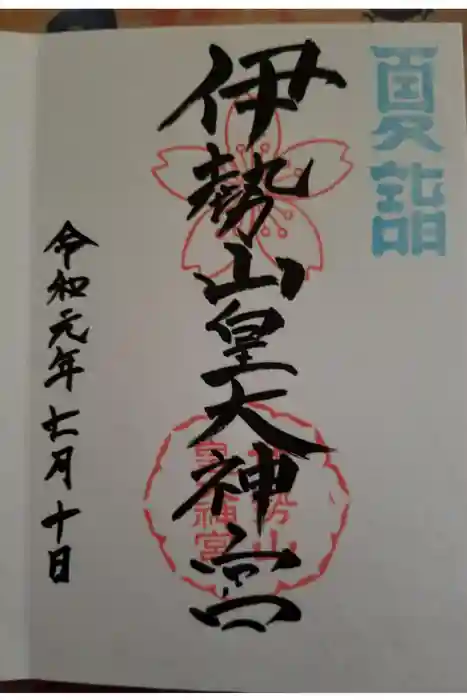 夏詣
伊勢山皇大神宮
伊勢山
皇大神宮
令和元年七月十日